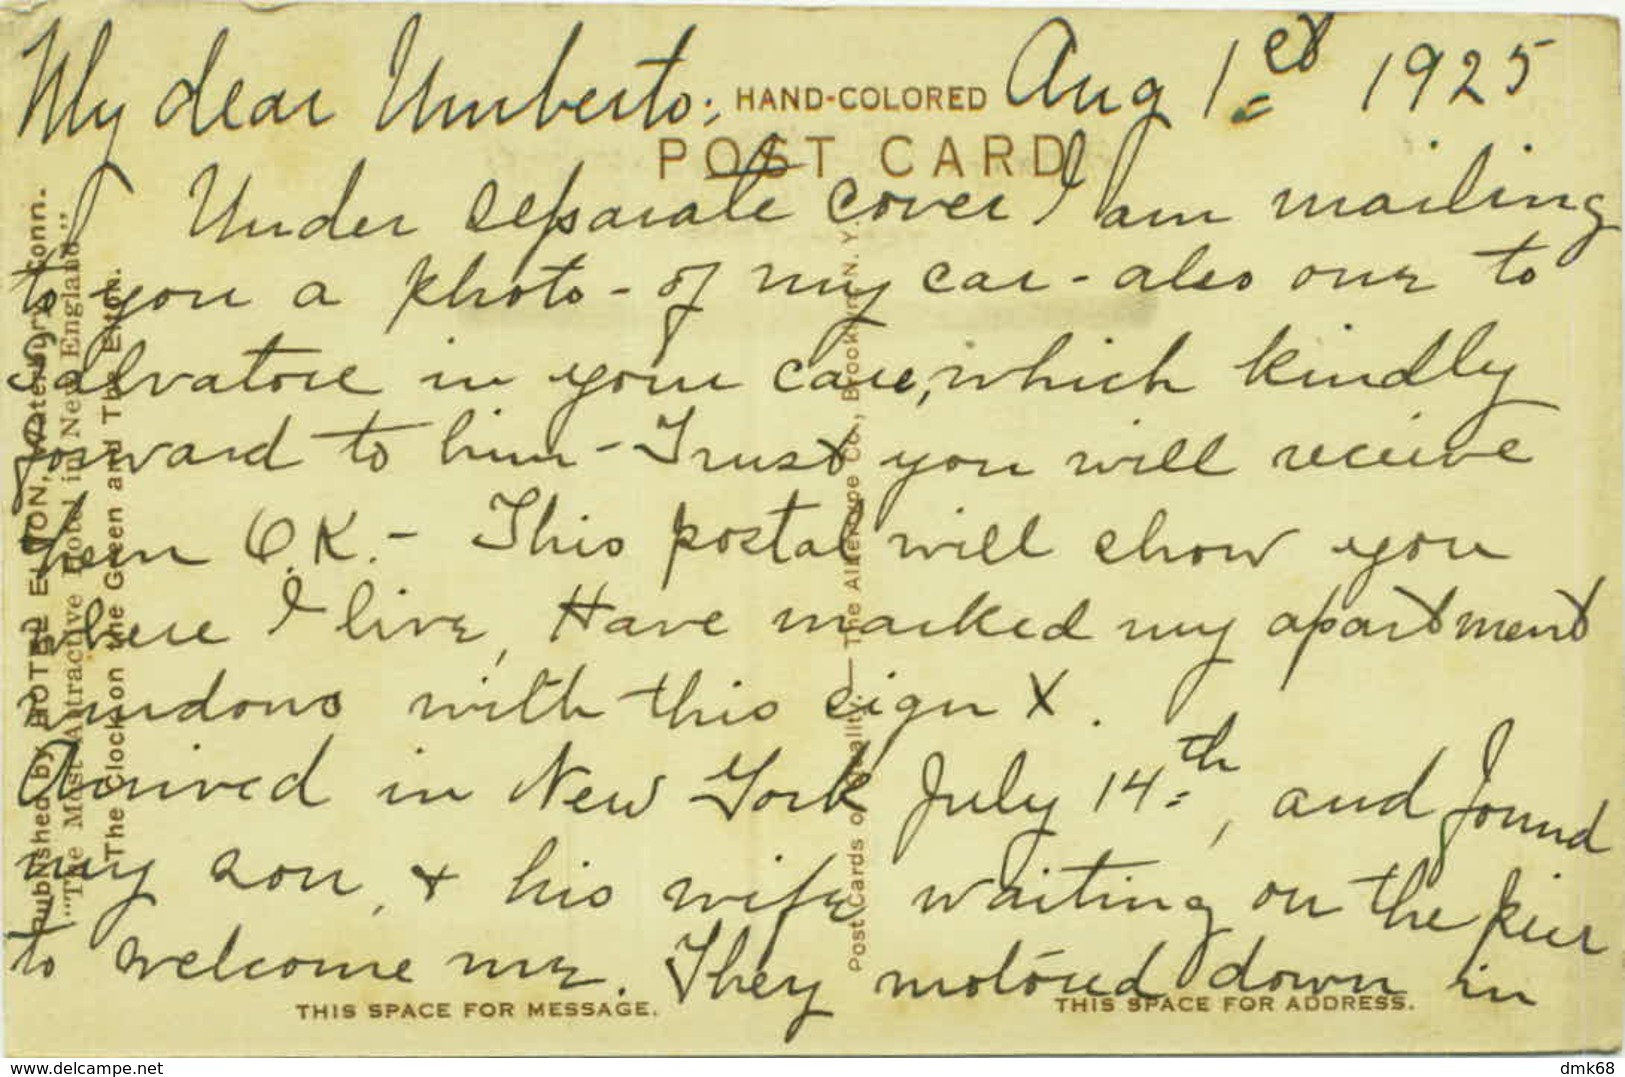 My dear Umberto: Aug 1st 1925
HAND-COLORED
POST CARD
Under separate cover I am mailing
to you a photo - of my car - also one to
Salvatore in your care, which kindly
forward to him - Trust you will receive
them O.K. - This postal will show you
where I live, Have marked my apartment
windows with this sign X.
Arrived in New York July 14th, and found
my son, & his wife waiting on the pier
to welcome me. They motored down in
THIS SPACE FOR MESSAGE.
THIS SPACE FOR ADDRESS.
Published by HOTEL ELTON, Waterbury, Conn.
"The Most Attractive Hotel in New England"
The Clock on the Green and The Elton.
Post Cards of Quality. — The Albertype Co., Brooklyn, N. Y.
www.delcampe.net
dmk68